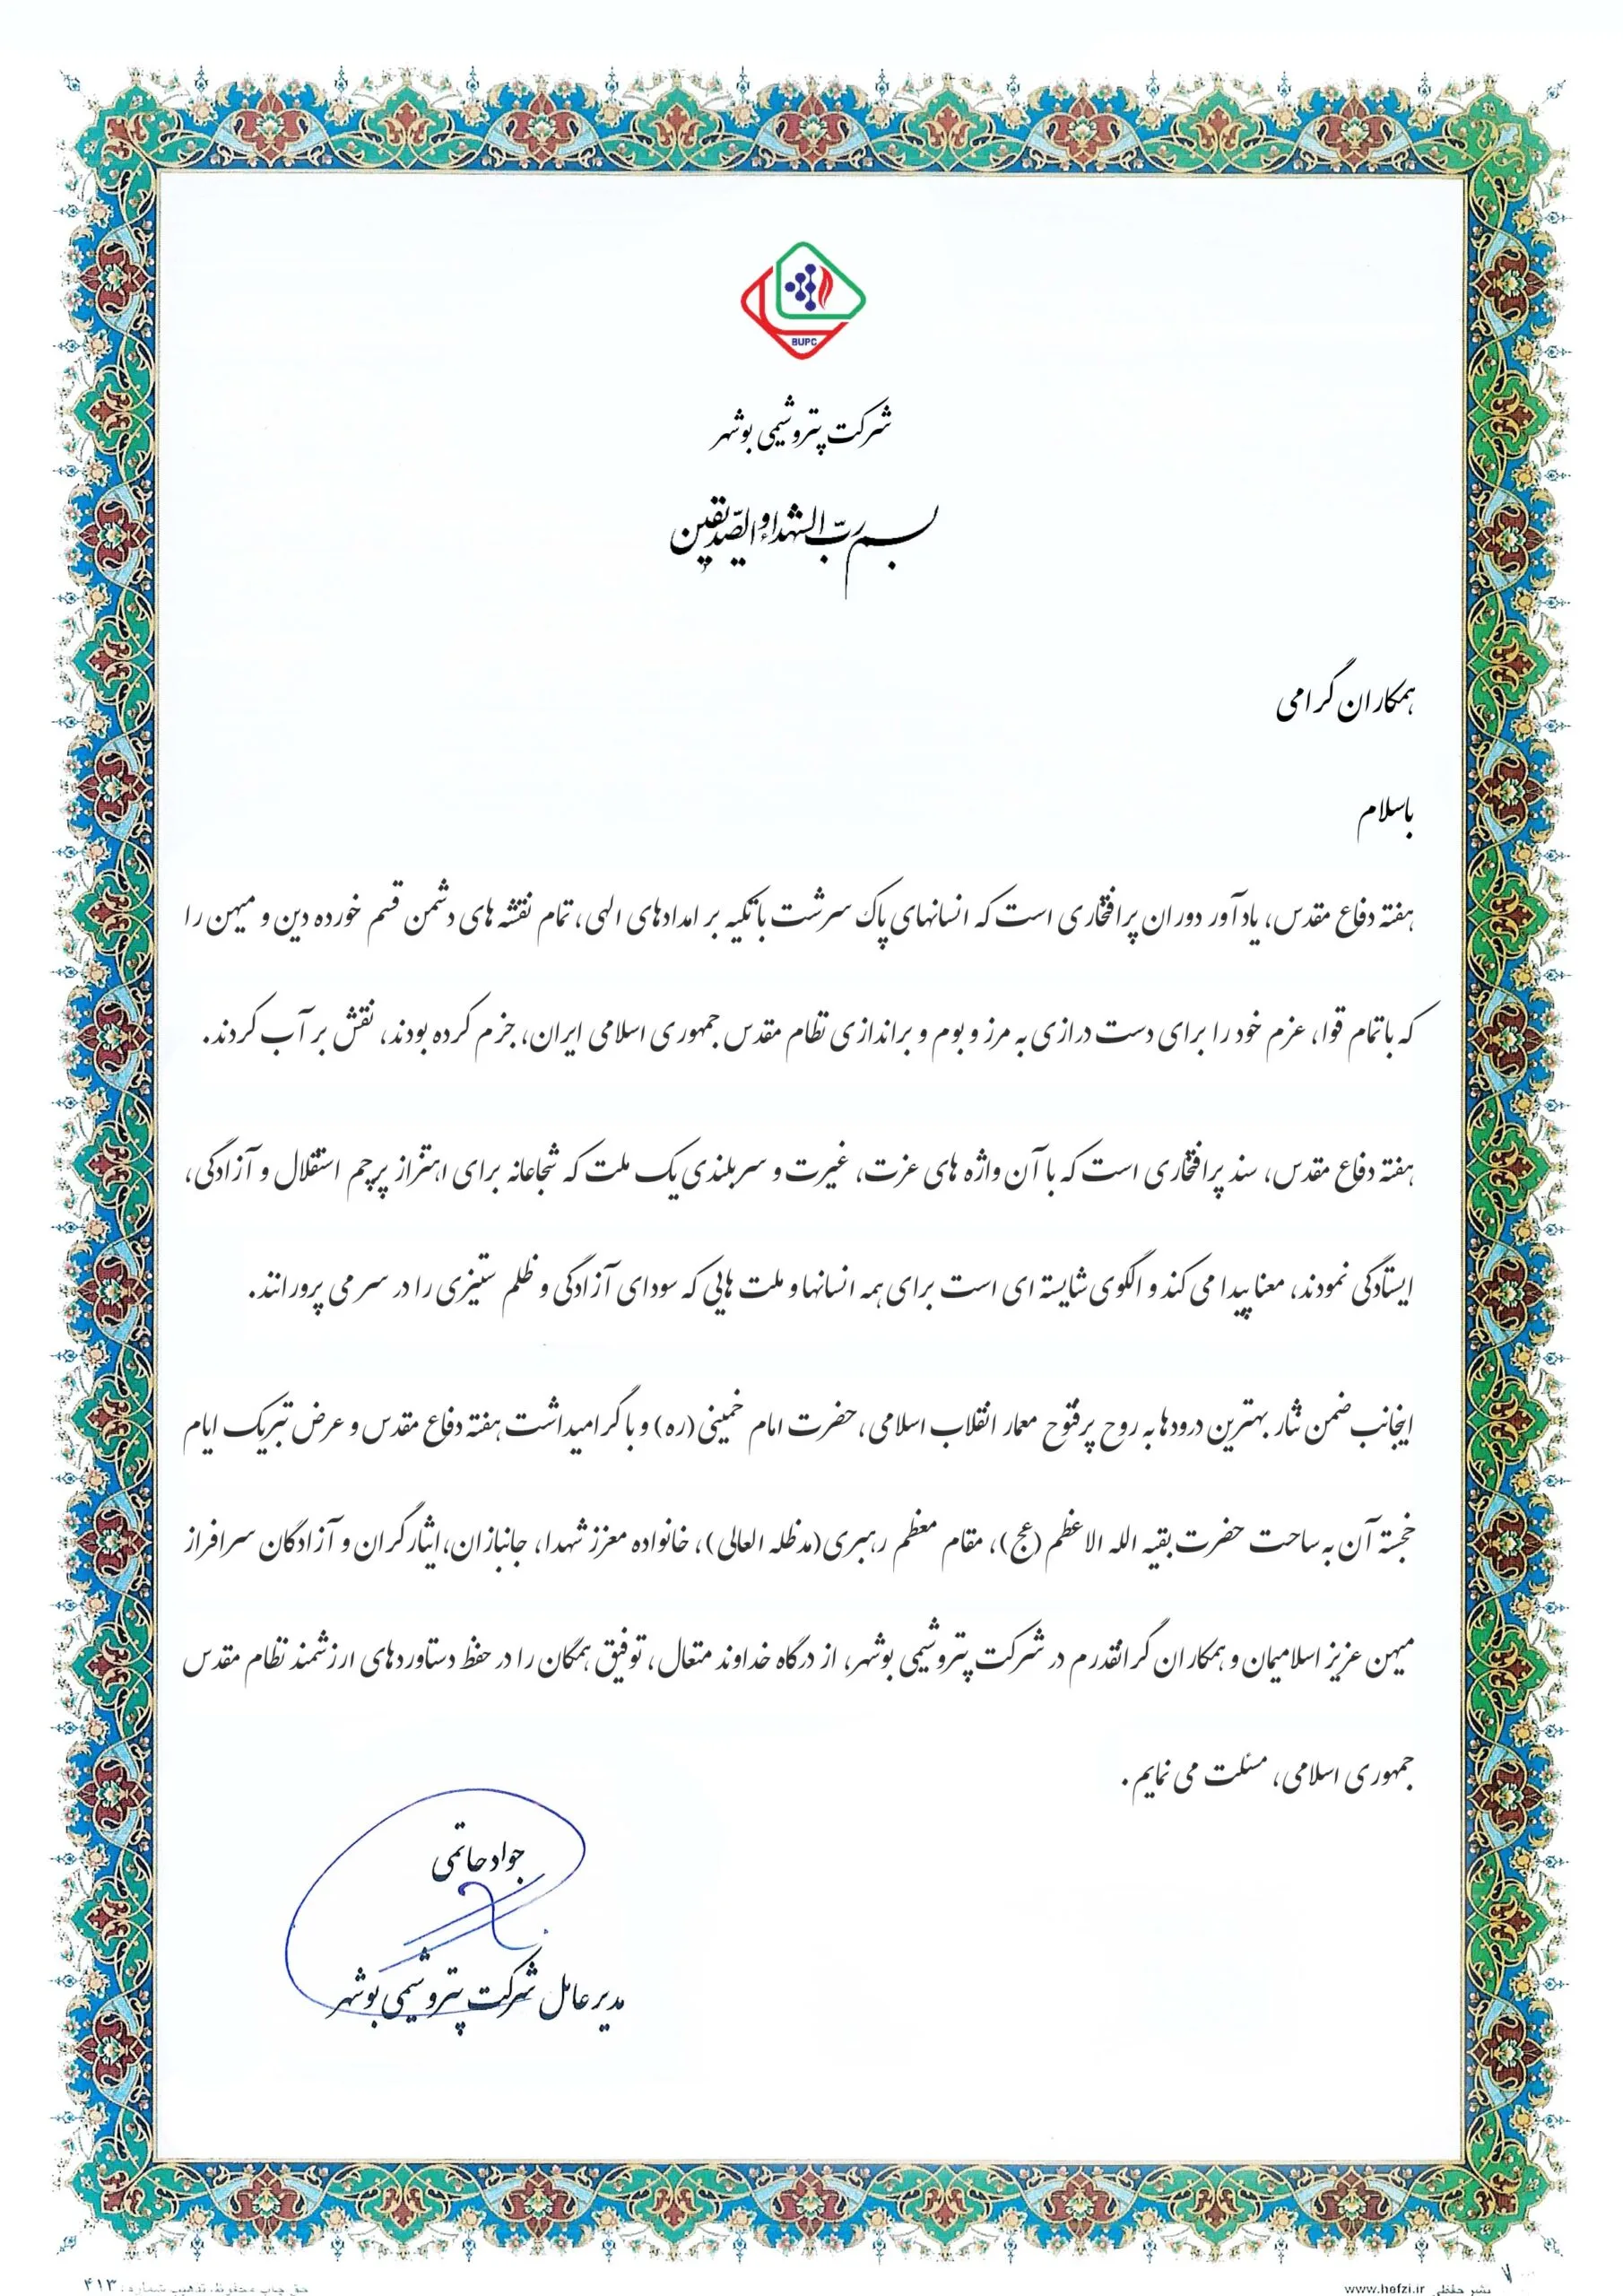 BUPC
شرکت پتروشیمی بوشهر
بسم رب الشهداء و الصدیقین
همکاران گرامی
باسلام
هفته دفاع مقدس، یادآور دوران پرافتخاری است که انسانهای پاک سرشت با تکیه بر امدادهای الهی، تمام نقشه های دشمن قسم خورده دین و میهن را
که با تمام قوا، عزم خود را برای دست درازی به مرز و بوم و براندازی نظام مقدس جمهوری اسلامی ایران، جزم کرده بودند، نقش بر آب کردند.
هفته دفاع مقدس، سند پرافتخاری است که با آن واژه های عزت، غیرت و سربلندی یک ملت که شجاعانه برای اهتزاز پرچم استقلال و آزادگی،
ایستادگی نمودند، معنا پیدا می کند و الگوی شایسته ای است برای همه انسانها و ملت هایی که سودای آزادگی و ظلم ستیزی را در سر می پرورانند.
اینجانب ضمن نثار بهترین درودها به روح پرفتوح معمار انقلاب اسلامی، حضرت امام خمینی (ره) و با گرامیداشت هفته دفاع مقدس و عرض تبریک ایام
خجسته آن به ساحت حضرت بقیه الله الاعظم (عج)، مقام معظم رهبری (مدظله العالی)، خانواده معزز شهدا، جانبازان، ایثارگران و آزادگان سرافراز
میهن عزیز اسلامیمان و همکاران گرانقدرم در شرکت پتروشیمی بوشهر، از درگاه خداوند متعال، توفیق همگان را در حفظ دستاوردهای ارزشمند نظام مقدس
جمهوری اسلامی، مسئلت می نمایم.
جواد حاتمی
مدیر عامل شرکت پتروشیمی بوشهر
نشر حفظی www.hefzi.ir
حق چاپ محفوظ، تذهیب شماره: ۴۱۳